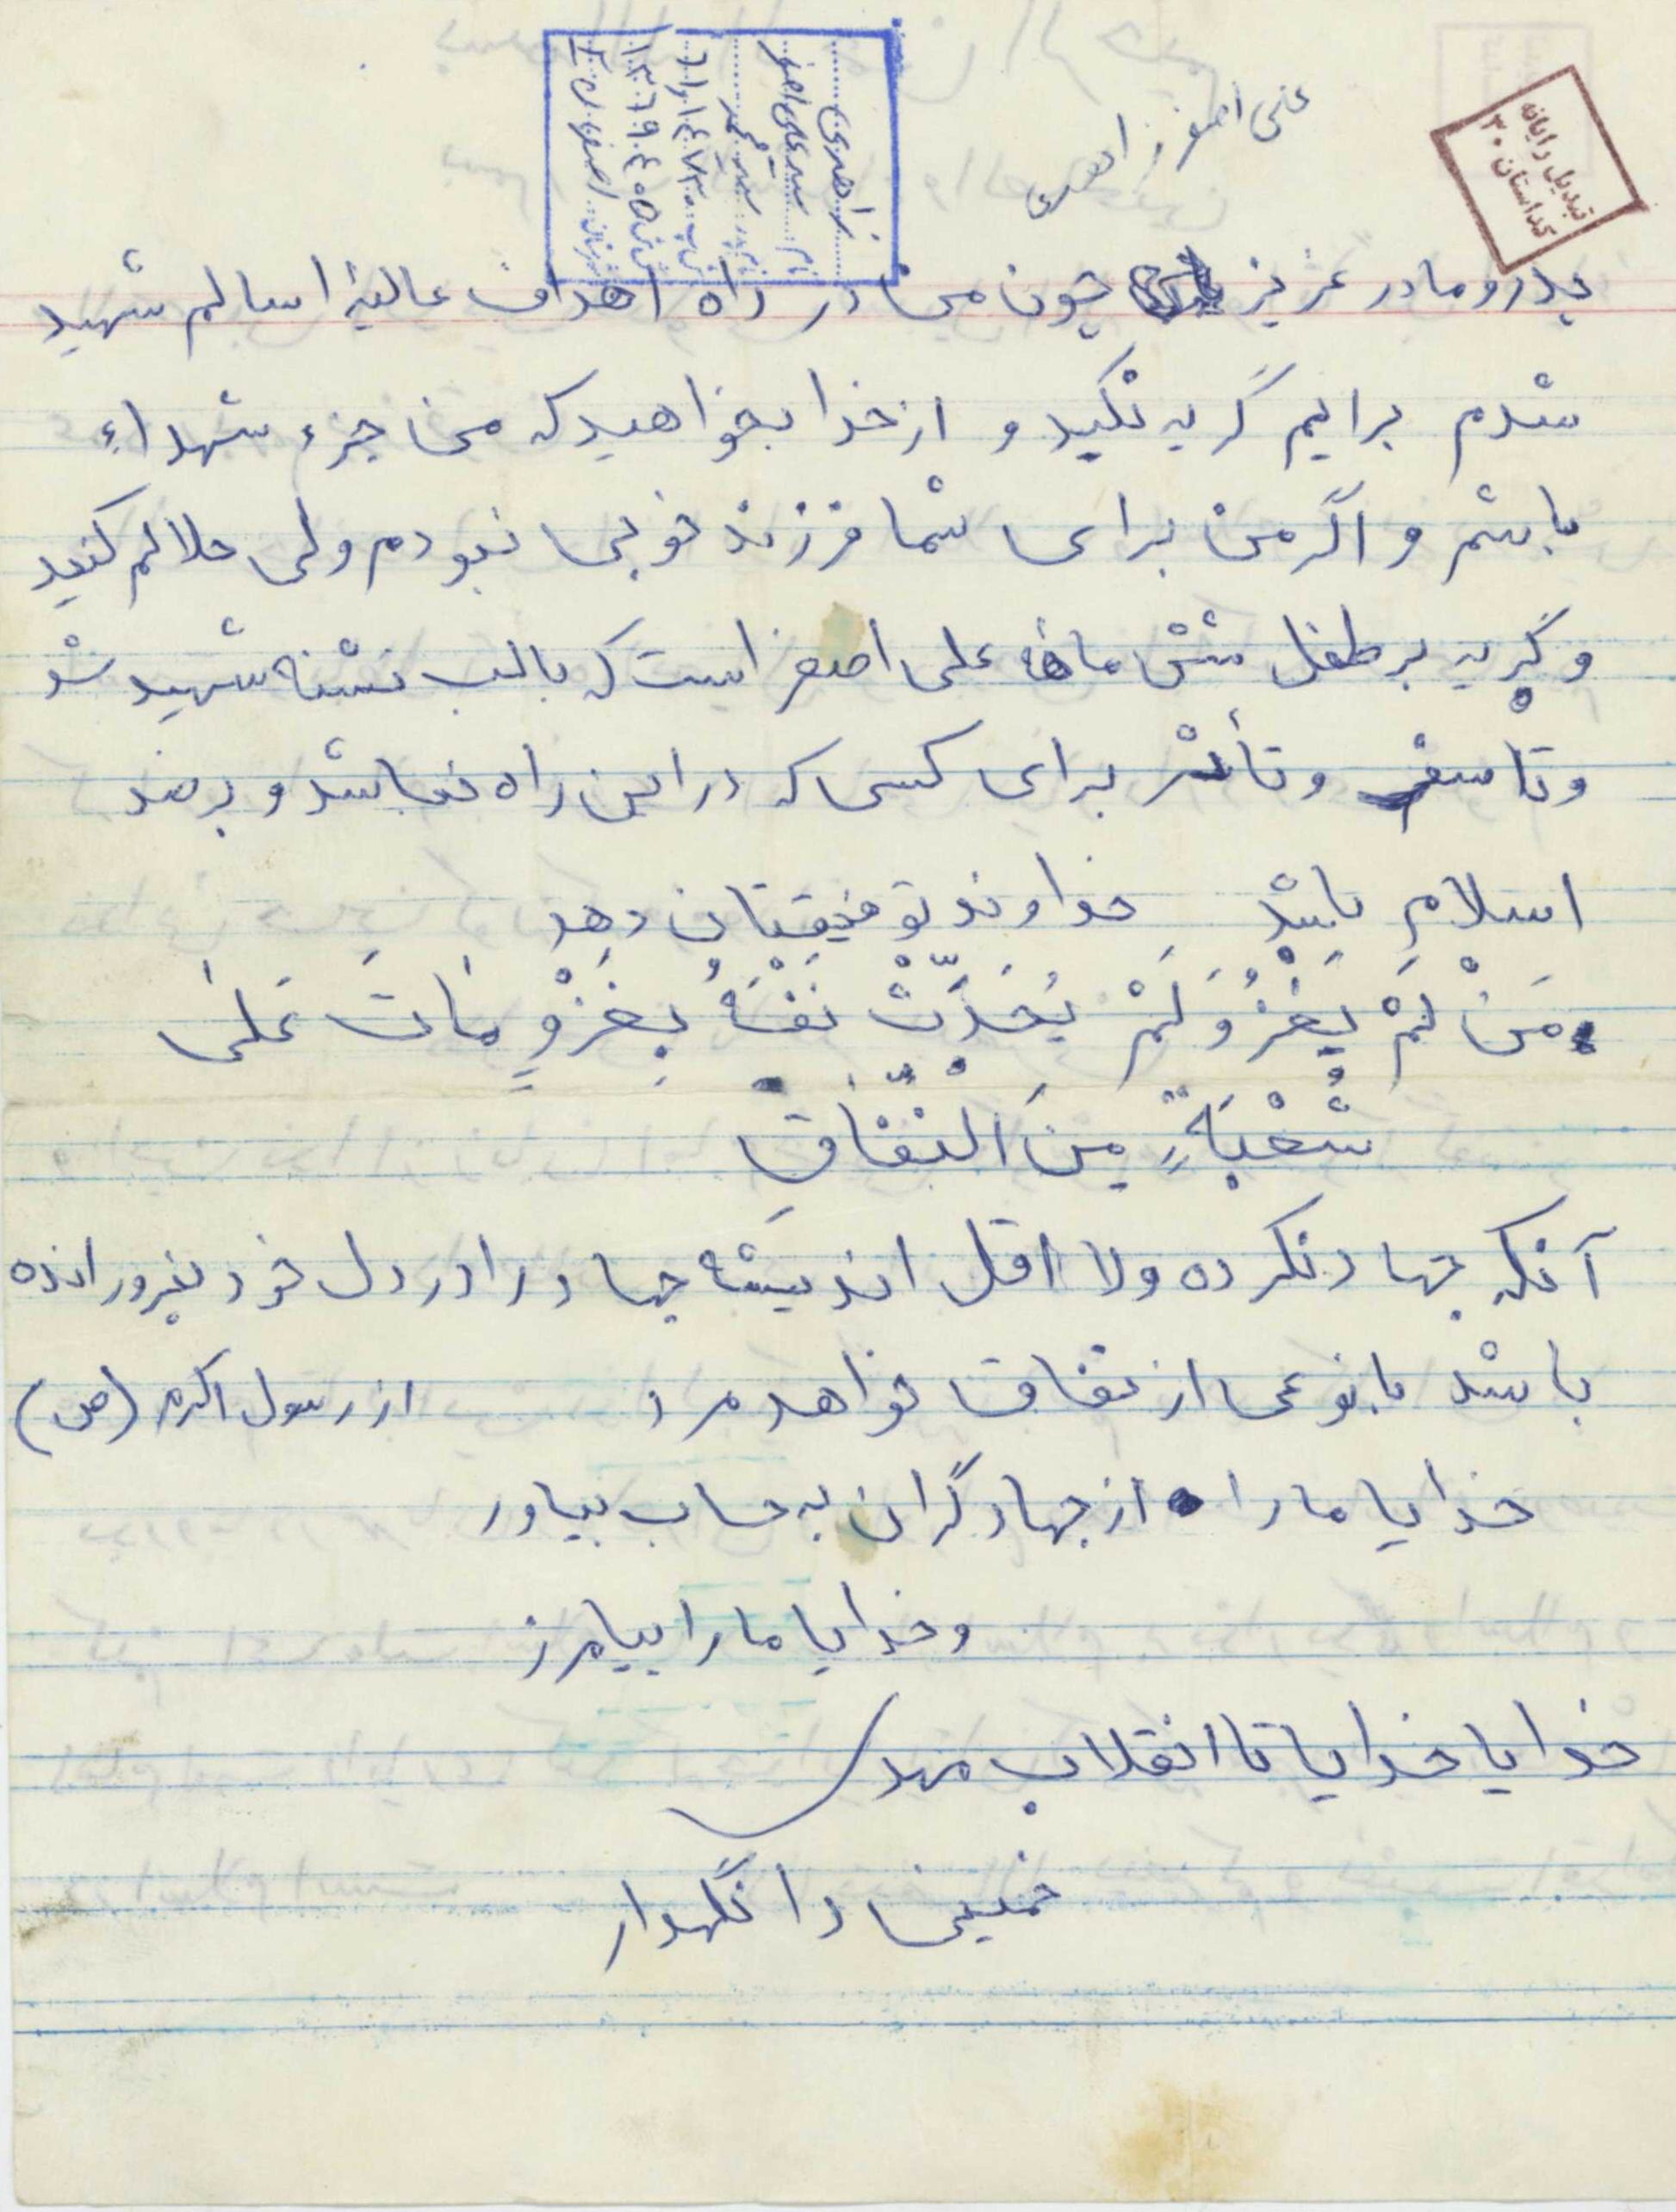 علی اصغر زاهدی
تبدیل رایانه
کد استان ۳۰
زاهدی
نام سید علی اصغر
پدر و مادر عزیز چون من در راه اهداف عالیهٔ اسالم شهید
شدم برایم گریه نکنید و از خدا بخواهید که من جزء شهداء
باشم و اگر من برای شما فرزند خوبی نبودم ولی حلالم کنید
و گریه بر طفل شش ماهه علی اصغر است که بالب تشنه شهید شد
و تاسف و تأثر برای کسی که در این راه نباشد و بر ضد
اسلام باشد خداوند توفیقتان دهد
مَنْ لَمْ یَغْزُ وَ لَمْ یُحَدِّثْ نَفْسَهُ بِغَزْوٍ مٰاتَ عَلیٰ
شُعْبَةٍ مِنَ النِّفٰاقِ
آنکه جهاد نکرده ولا اقل اندیشه جهاد را در دل خود نپرورانده
باشد با نوعی از نفاق خواهد مرد از رسول اکرم (ص)
خدایا ما را از جهادگران به حساب بیاور
و خدایا ما را بیامرز
خدایا خدایا تا انقلاب مهدی
خمینی را نگهدار